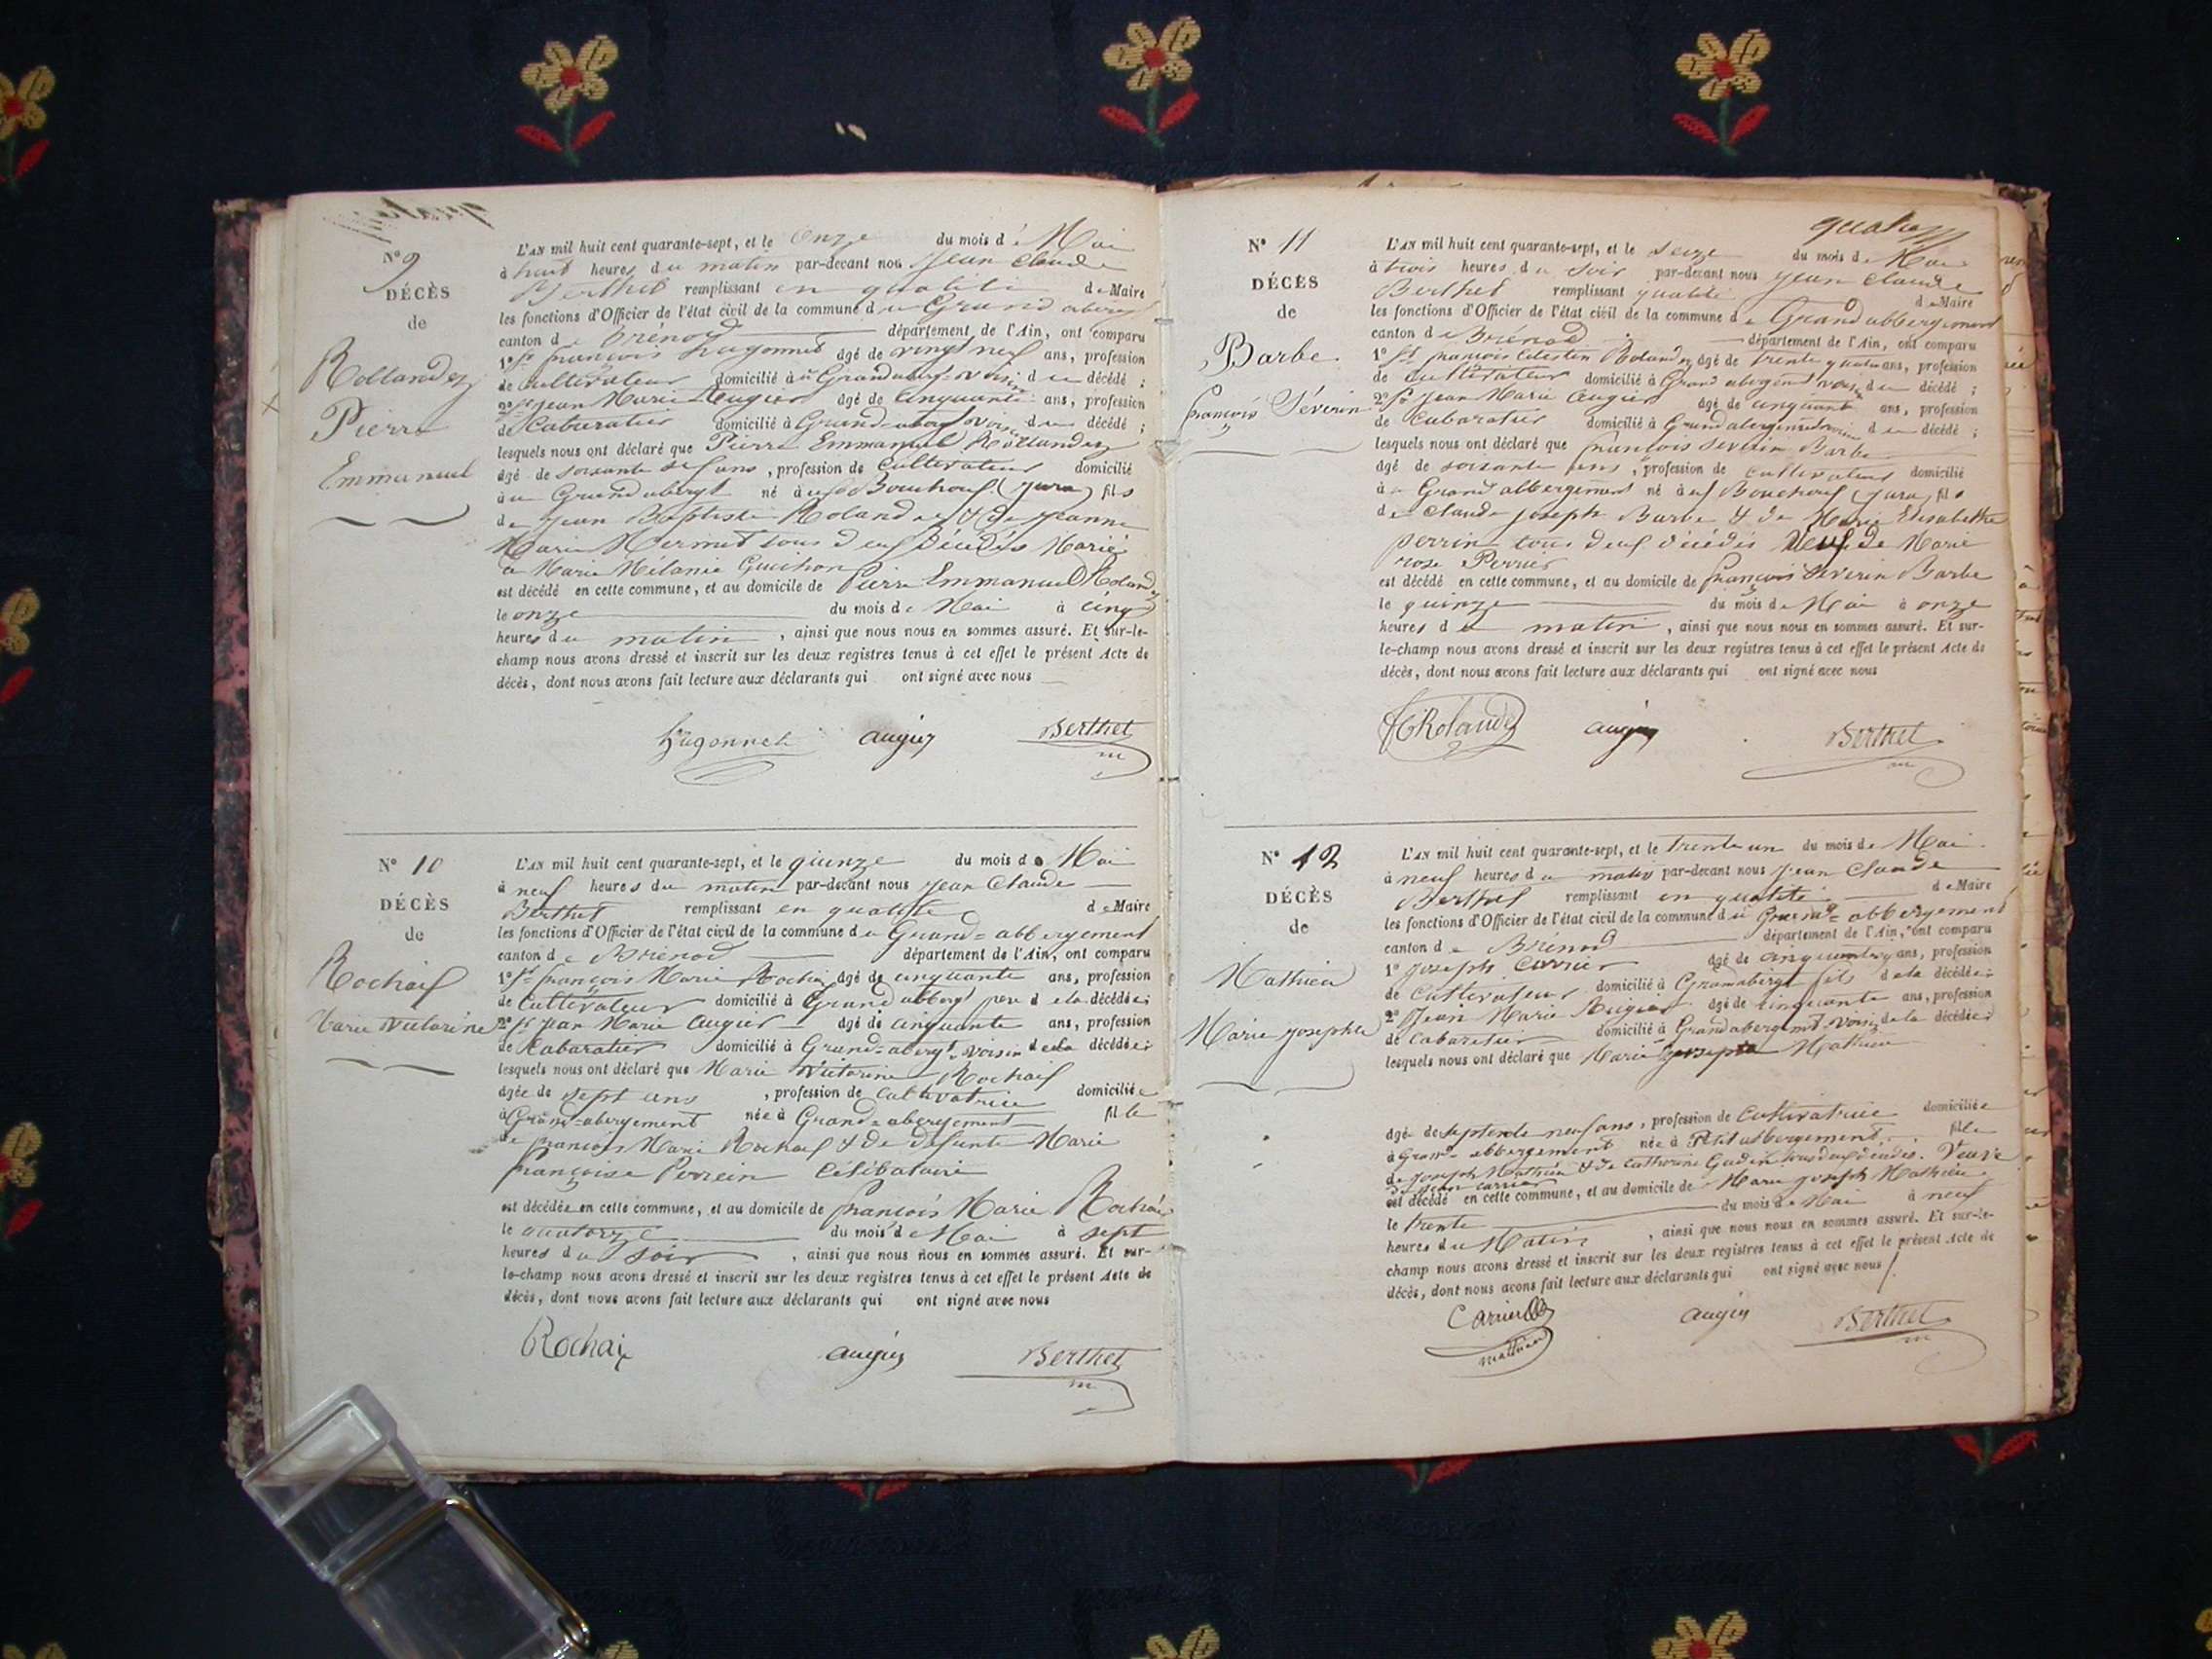 N° 9
DÉCÈS
de
Rollandez
Pierre
Emmanuel
L'AN mil huit cent quarante-sept, et le Onze du mois de Mai
à huit heures du matin par-devant nous Jean Claude
Berthet remplissant en qualité de Maire
les fonctions d'Officier de l'état civil de la commune du Grand aberg
canton de Brénod département de l'Ain, ont comparu
1° Sr françois hugonnet âgé de vingt neuf ans, profession
de cultivateur domicilié à Grand abergt voisin du décédé ;
2° Sr Jean Marie Augier âgé de cinquante ans, profession
de Cabaratier domicilié à Grand-abergt voisin du décédé ;
lesquels nous ont déclaré que Pierre Emmanuel Rollandez
âgé de soixante ans, profession de Cultivateur domicilié
au Grand abergt né aux Bouchoux (jura) fils
de Jean Baptiste Rolandez & de Jeanne
Marie Mermet tous deux décédés Marié
a Marie Mélanie Guichon
est décédé en cette commune, et au domicile de Pierre Emmanuel Roland
le onze du mois de Mai à cinq
heures du matin, ainsi que nous nous en sommes assuré. Et sur-le-
champ nous avons dressé et inscrit sur les deux registres tenus à cet effet le présent Acte de
décès, dont nous avons fait lecture aux déclarants qui ont signé avec nous
hugonnet augier Berthet
m
N° 10
DÉCÈS
de
Rochaix
Marie Victorine
L'AN mil huit cent quarante-sept, et le quinze du mois de Mai
à neuf heures du matin par-devant nous Jean Claude
Berthet remplissant en qualité de Maire
les fonctions d'Officier de l'état civil de la commune du Grand=abbergement
canton de Brénod département de l'Ain, ont comparu
1° Sr françois Marie Rochaix âgé de cinquante ans, profession
de Cultivateur domicilié à Grand abbergt père de la décédée ;
2° Sr Jean Marie Augier âgé de cinquante ans, profession
de Cabaratier domicilié à Grand=abergt voisin de la décédée ;
lesquels nous ont déclaré que Marie Victorine Rochaix
âgée de sept ans, profession de cultivatrice domiciliée
à Grand-abergement née à Grand-abergement fille
de françois Marie Rochaix & de defunte Marie
françoise Perrein Célibataire
est décédée en cette commune, et au domicile de françois Marie Rochaix
le quatorze du mois de Mai à sept
heures du soir, ainsi que nous nous en sommes assuré. Et sur-
le-champ nous avons dressé et inscrit sur les deux registres tenus à cet effet le présent Acte de
décès, dont nous avons fait lecture aux déclarants qui ont signé avec nous
Rochaix augier Berthet
m
N° 11
DÉCÈS
de
Barbe
françois Séverin
L'AN mil huit cent quarante-sept, et le seize du mois de Mai
à trois heures du soir par-devant nous Jean Claude
Berthet remplissant qualité de Maire
les fonctions d'Officier de l'état civil de la commune de Grand abbergement
canton de Brénod département de l'Ain, ont comparu
1° Sr françois Célestin Rolandez âgé de trente quatre ans, profession
de cultivateur domicilié à Grand abergemt voisin du décédé ;
2° Sr Jean Marie Augier âgé de cinquante ans, profession
de Cabaratier domicilié à Grand abergement voisin du décédé ;
lesquels nous ont déclaré que françois severin Barbe
âgé de soixante ans, profession de cultivateur domicilié
à Grand albergement né aux Bouchoux (jura) fils
de Claude joseph Barbe & de Marie Elisabethe
perrin tous deux décédés Veuf de Marie
rose Perrier
est décédé en cette commune, et au domicile de françois Séverin Barbe
le quinze du mois de Mai à onze
heures du matin, ainsi que nous nous en sommes assuré. Et sur-
le-champ nous avons dressé et inscrit sur les deux registres tenus à cet effet le présent Acte de
décès, dont nous avons fait lecture aux déclarants qui ont signé avec nous
Rolandez augier Berthet
m
N° 12
DÉCÈS
de
Mathieu
Marie josephte
L'AN mil huit cent quarante-sept, et le trente un du mois de Mai
à neuf heures du matin par-devant nous Jean Claude
Berthet remplissant en qualité de Maire
les fonctions d'Officier de l'état civil de la commune du Grand=abbergement
canton de Brénod département de l'Ain, ont comparu
1° Joseph Carrier âgé de ans, profession
de Cultivateur domicilié à Grandabergt fils de la décédée
2° Jean Marie Augier âgé de cinquante ans, profession
de Cabaretier domicilié à Grand abergemt voisin de la décédée
lesquels nous ont déclaré que Marie Mathieu
âgée de ans, profession de Cultivatrice domiciliée
à Grand-abbergement née à Petit abbergement fille
de joseph Mathieu & de Catherine Gudin tous deux décédés. Veuve
de Jean Carrier
est décédé en cette commune, et au domicile de Marie joseph Mathieu
le trente du mois de Mai à neuf
heures du Matin, ainsi que nous nous en sommes assuré. Et sur-le-
champ nous avons dressé et inscrit sur les deux registres tenus à cet effet le présent Acte de
décès, dont nous avons fait lecture aux déclarants qui ont signé avec nous
Carrier augier Berthet
mathieu m